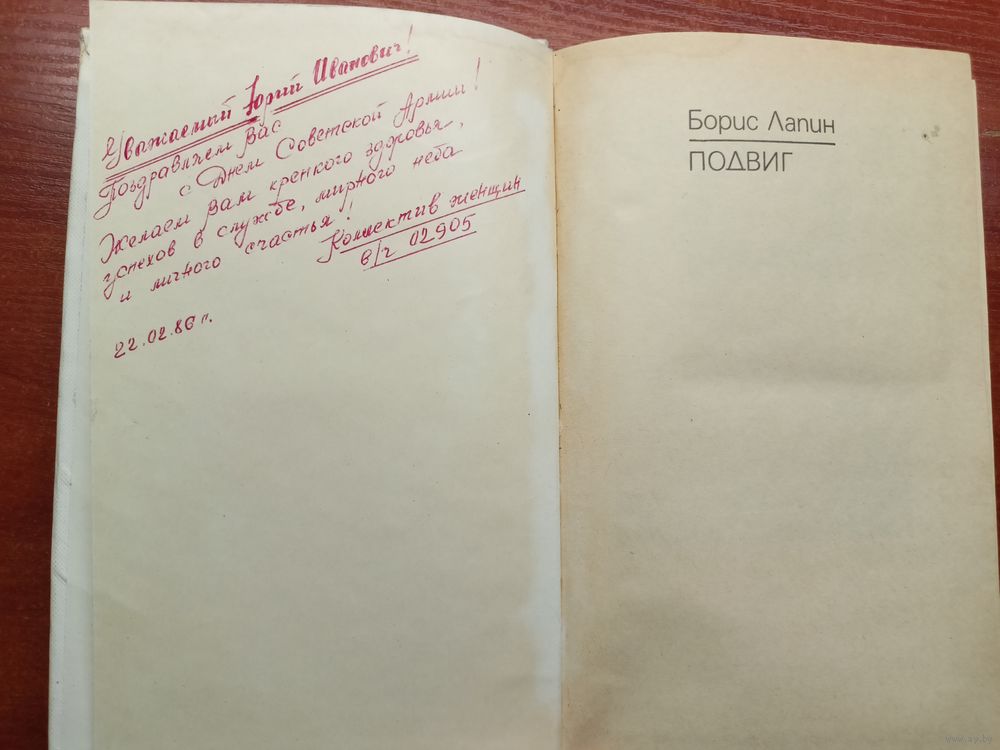 Уважаемый Юрий Иванович!
Поздравляем Вас
с Днем Советской Армии!
Желаем Вам крепкого здоровья,
успехов в службе, мирного неба
и личного счастья!
Коллектив женщин
в/ч 02905
22.02.86 г.
Борис Лапин
ПОДВИГ
www.ay.by